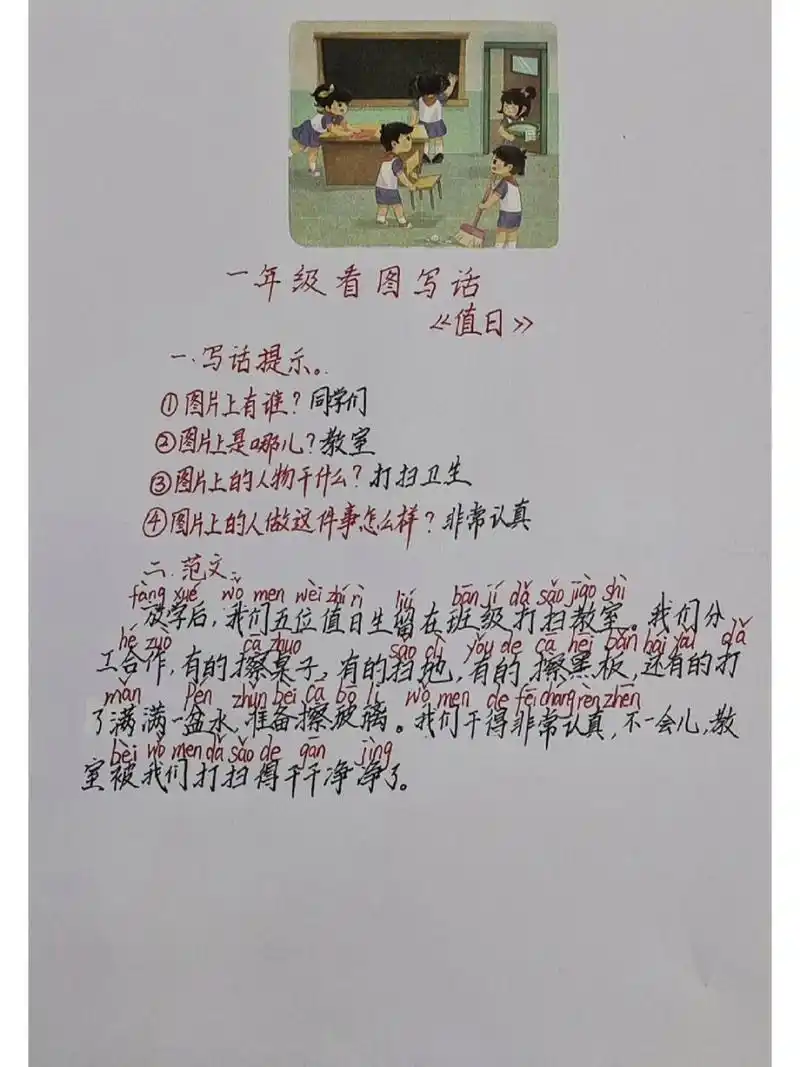 一年级看图写话
《值日》
一.写话提示。
①图片上有谁?同学们
②图片上是哪儿?教室
③图片上的人物干什么?打扫卫生
④图片上的人做这件事怎么样?非常认真
二.范文:
fàng xué wǒ men wèi zhí rì liú bān jí dǎ sǎo jiào shì
放学后,我们五位值日生留在班级打扫教室。我们分
hé zuò cā zhuo sǎo dì yǒu de cā hēi bǎn hái yǒu dǎ
工合作,有的擦桌子,有的扫地,有的擦黑板,还有的打
mǎn pén zhǔn bèi cā bō li wǒ men de fēi cháng rèn zhēn
了满满一盆水,准备擦玻璃。我们干得非常认真,不一会儿,教
bèi wǒ men dǎ sǎo de gān jìng
室被我们打扫得干干净净了。